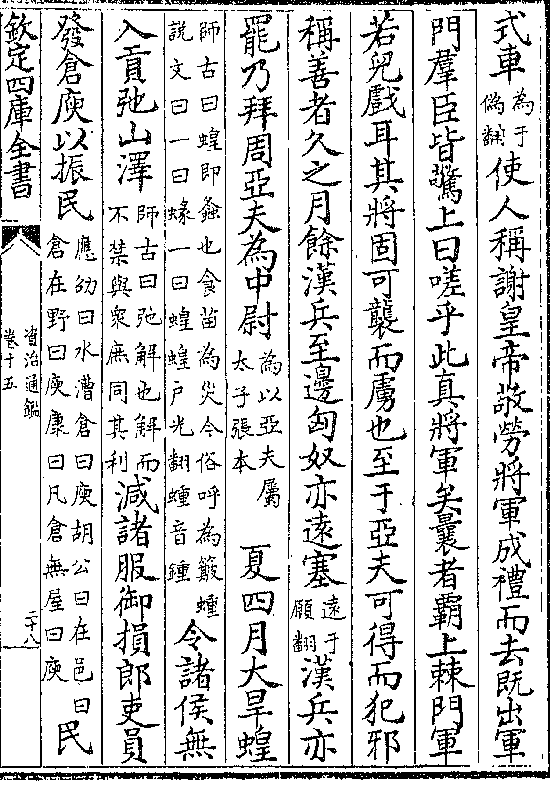 式車為于偽翻使人稱謝皇帝敬勞將軍成禮而去既出軍
門羣臣皆驚上曰嗟乎此真將軍矣曩者霸上棘門軍
若兒戲耳其將固可襲而虜也至于亞夫可得而犯邪
稱善者久之月餘漢兵至邊匈奴亦遠塞遠于願翻漢兵亦
罷乃拜周亞夫為中尉為以亞夫屬太子張本 夏四月大旱蝗
師古曰蝗即螽也食苗為災今俗呼為簸蝩說文曰一曰螽一曰蝗蝗戶光翻蝩音鍾令諸侯無
入貢弛山澤師古曰弛解也解而不禁與衆庶同其利減諸服御損郎吏員
發倉庾以振民應劭曰水漕倉曰庾胡公曰在邑曰倉在野曰庾康曰凡倉無屋曰庾民
欽定四庫全書
資治通鑑
卷十五
二十八